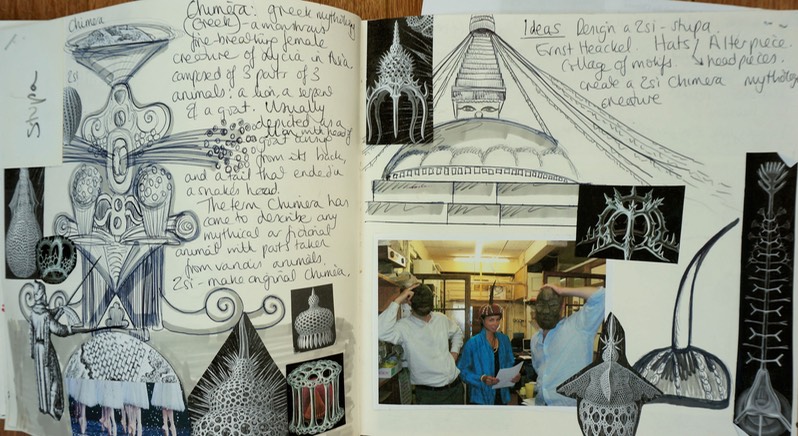 Chimera
Chimera: greek mythology
(Greek) - a monstrous
fire-breathing female
creature of Lycia in Asia
composed of 3 parts of 3
animals: a lion, a serpent
& a goat. Usually
depicted as a
lion with head of
a goat
from its back,
and a tail that ended in
a snakes head.
The term Chimera has
come to describe any
mythical or fictional
animal with parts taker
from various animals.
2si - make original Chimera.
2si
Stupa
Ideas Design a 2si - stupa.
Ernst Haeckel. Hats / Alterpiece.
Collage of motifs headpieces.
create a 2si Chimera mytholog
creature